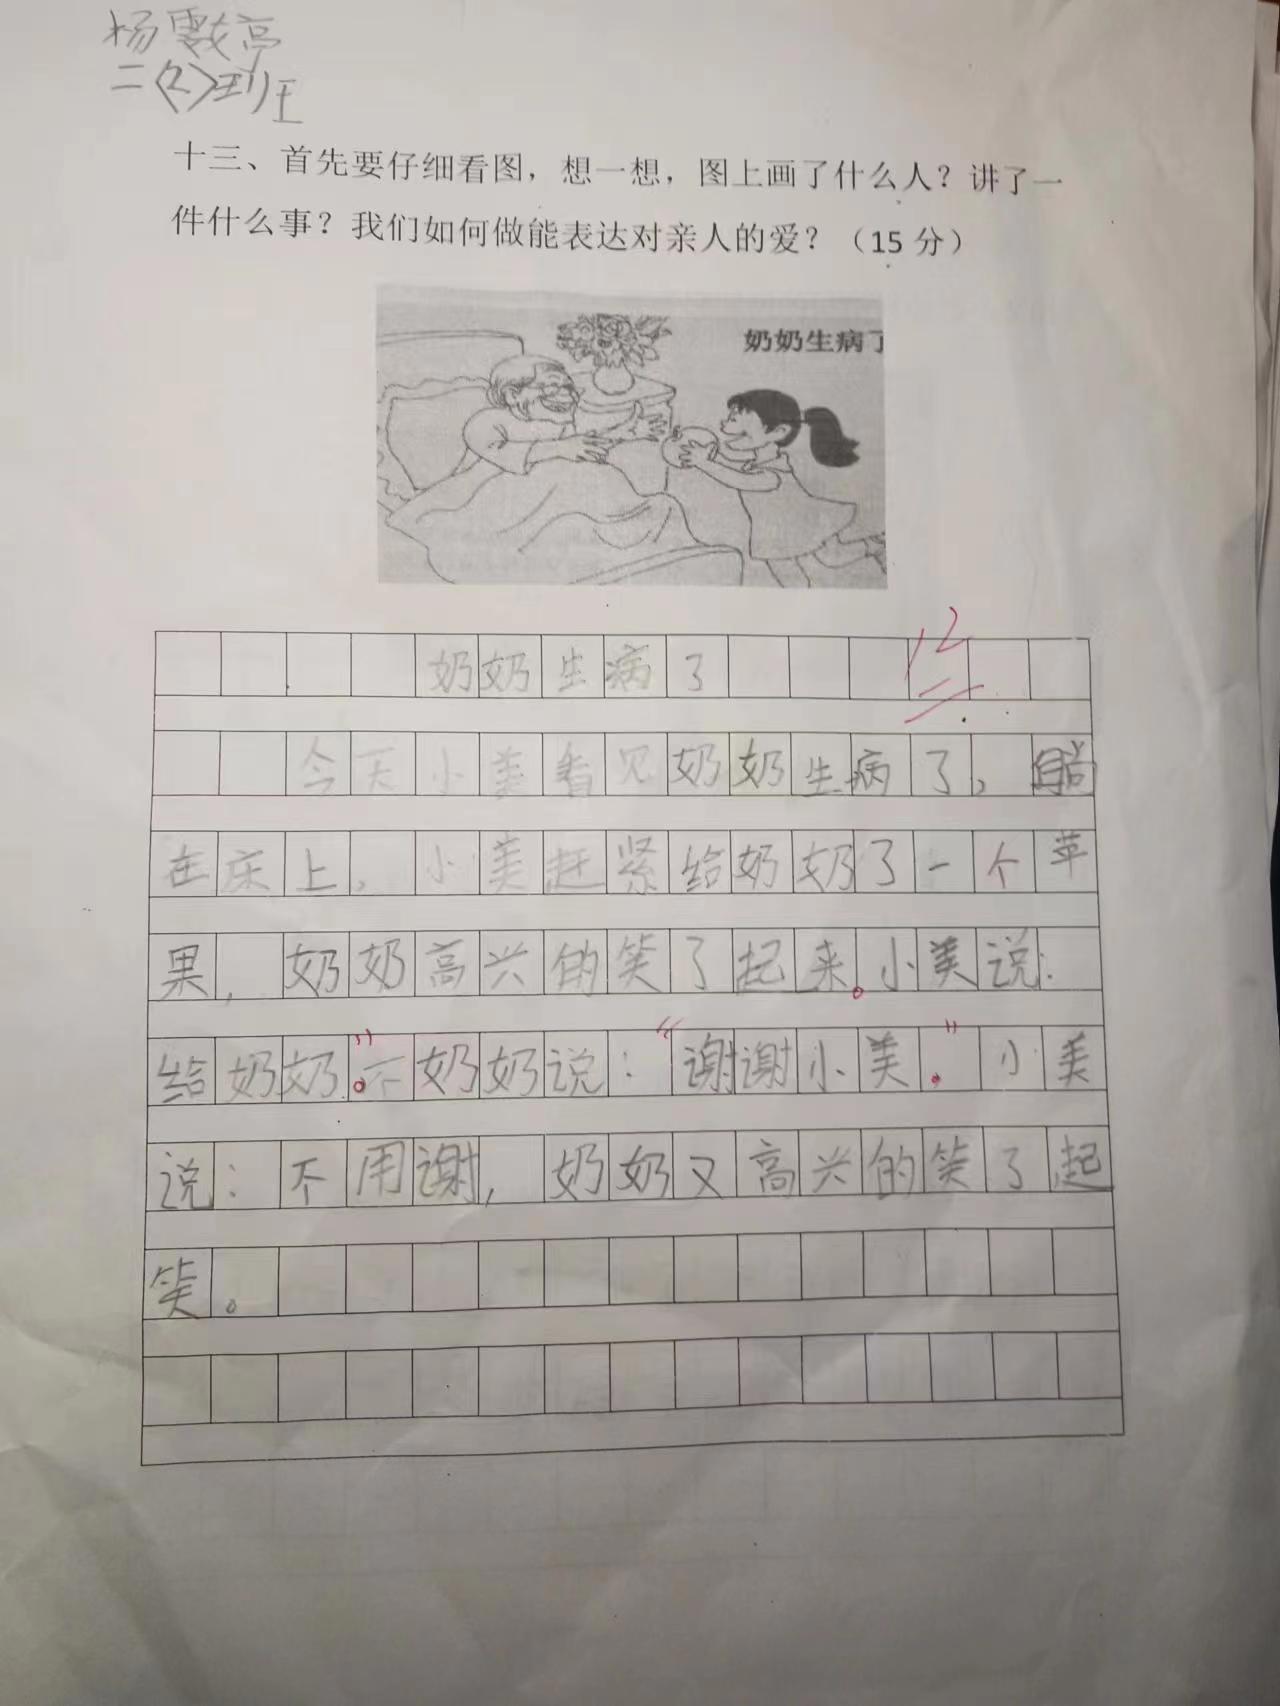 杨
二〈2〉班
十三、首先要仔细看图，想一想，图上画了什么人？讲了一
件什么事？我们如何做能表达对亲人的爱？（15 分）
奶奶生病了
奶奶生病了
12
今天小美看见奶奶生病了，躺
在床上，小美赶紧给奶奶了一个苹
果，奶奶高兴的笑了起来。小美说：
给奶奶。”不奶奶说：“谢谢小美。”小美
说：不用谢，奶奶又高兴的笑了起
笑。